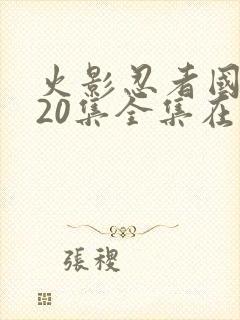 火影忍者國
20集全集在
張稷